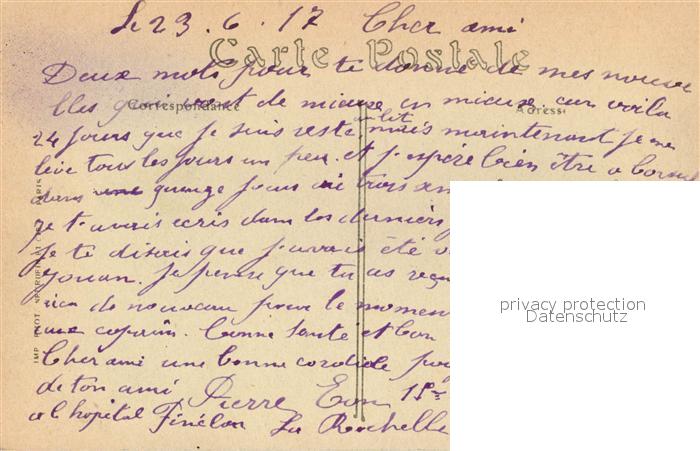 Le 23. 6. 17 Cher ami
Carte Postale
Deux mots pour te donné de mes nouve
Correspondance
Adresse
lles qui vont de mieux en mieux. car voila
au lit
24 jours que je suis resté mais maintenant je me
lève tous les jours un peu. et j'espère bien être a
dans une quinze jours ou trois sem
je t'avais ecris dans les derniers
je te disais que j'avais été
je pense que tu as reçu
rien de nouveau pour le momen
aux copains. bonne santé et bon
Cher ami une bonne cordiale
de ton ami Pierre
a l hopital Fénélon La Rochelle
privacy protection
Datenschutz